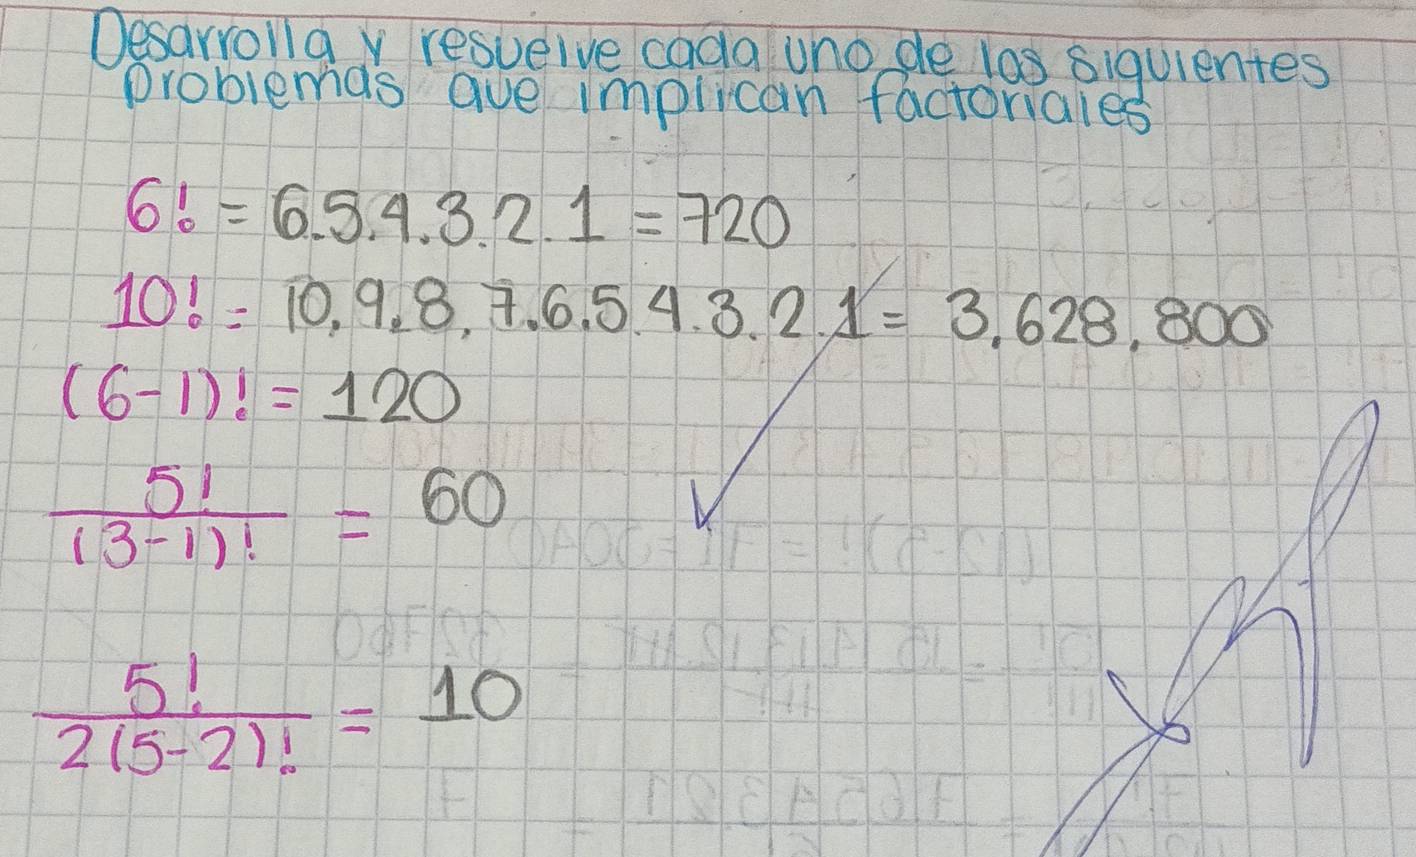 Desarrolla y resuelve cada uno de los siguientes
problemas que implican factoriales
6! = 6.5.4.3.2.1 = 720
10! = 10.9.8.7.6.5.4.3.2.1 = 3,628,800
(6-1)! = 120
5!/(3-1)! = 60
5!/2(5-2)! = 10